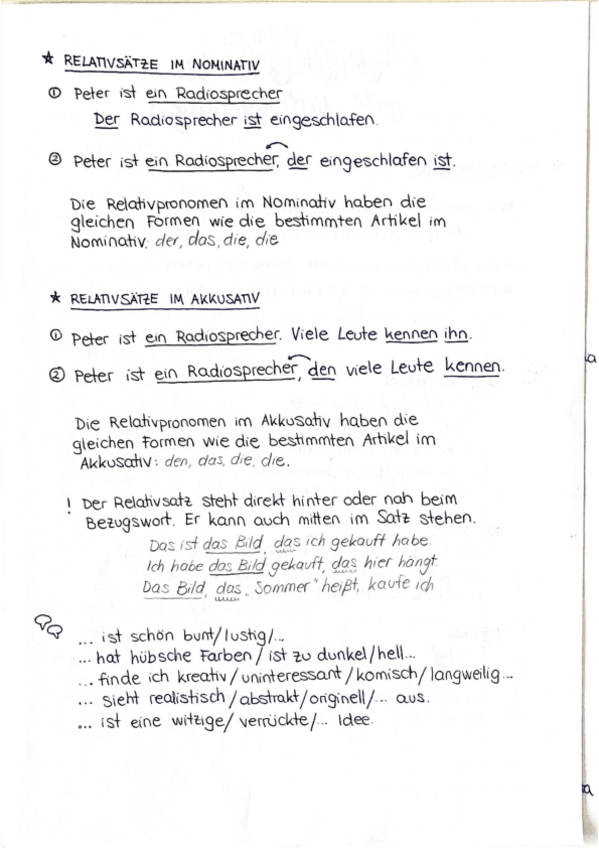 ★ RELATIVSÄTZE IM NOMINATIV
① Peter ist ein Radiosprecher
Der Radiosprecher ist eingeschlafen.
② Peter ist ein Radiosprecher, der eingeschlafen ist.
Die Relativpronomen im Nominativ haben die
gleichen Formen wie die bestimmten Artikel im
Nominativ: der, das, die, die
★ RELATIVSÄTZE IM AKKUSATIV
① Peter ist ein Radiosprecher. Viele Leute kennen ihn.
② Peter ist ein Radiosprecher, den viele Leute kennen.
Die Relativpronomen im Akkusativ haben die
gleichen Formen wie die bestimmten Artikel im
Akkusativ: den, das, die, die.
! Der Relativsatz steht direkt hinter oder nah beim
Bezugswort. Er kann auch mitten im Satz stehen.
Das ist das Bild, das ich gekauft habe.
Ich habe das Bild gekauft, das hier hängt.
Das Bild, das „Sommer" heißt, kaufe ich
... ist schön bunt/lustig/...
... hat hübsche Farben/ist zu dunkel/hell...
... finde ich kreativ/uninteressant/komisch/langweilig...
... sieht realistisch/abstrakt/originell/... aus.
... ist eine witzige/verrückte/... Idee.